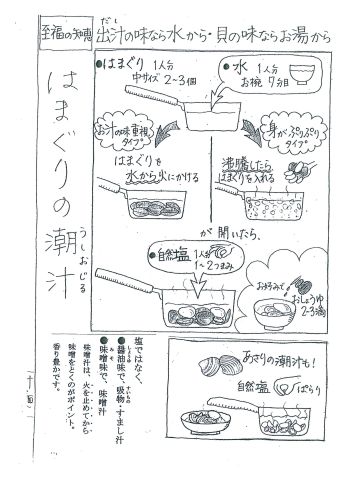 至福の知恵
出汁の味なら水から・貝の味ならお湯から
だし
はまぐりの潮汁
うしおじる
●はまぐり 1人分
中サイズ 2~3個
●水 1人分
お椀 7分目
お汁の味重視
タイプ
身がぷりぷり
タイプ
はまぐりを
水から火にかける
沸騰したら
はまぐりを入れる
が開いたら、
●自然塩 1人分
1~2つまみ
お好みで
おしょうゆ
2~3滴
塩ではなく、
●醤油味で、吸物・すまし汁
しょうゆ
すいもの
●味噌味で、味噌汁
みそ
味噌汁は、火を止めてから
味噌をとくのがポイント。
香り豊かです。
あさりの潮汁も!
自然塩
ぱらり